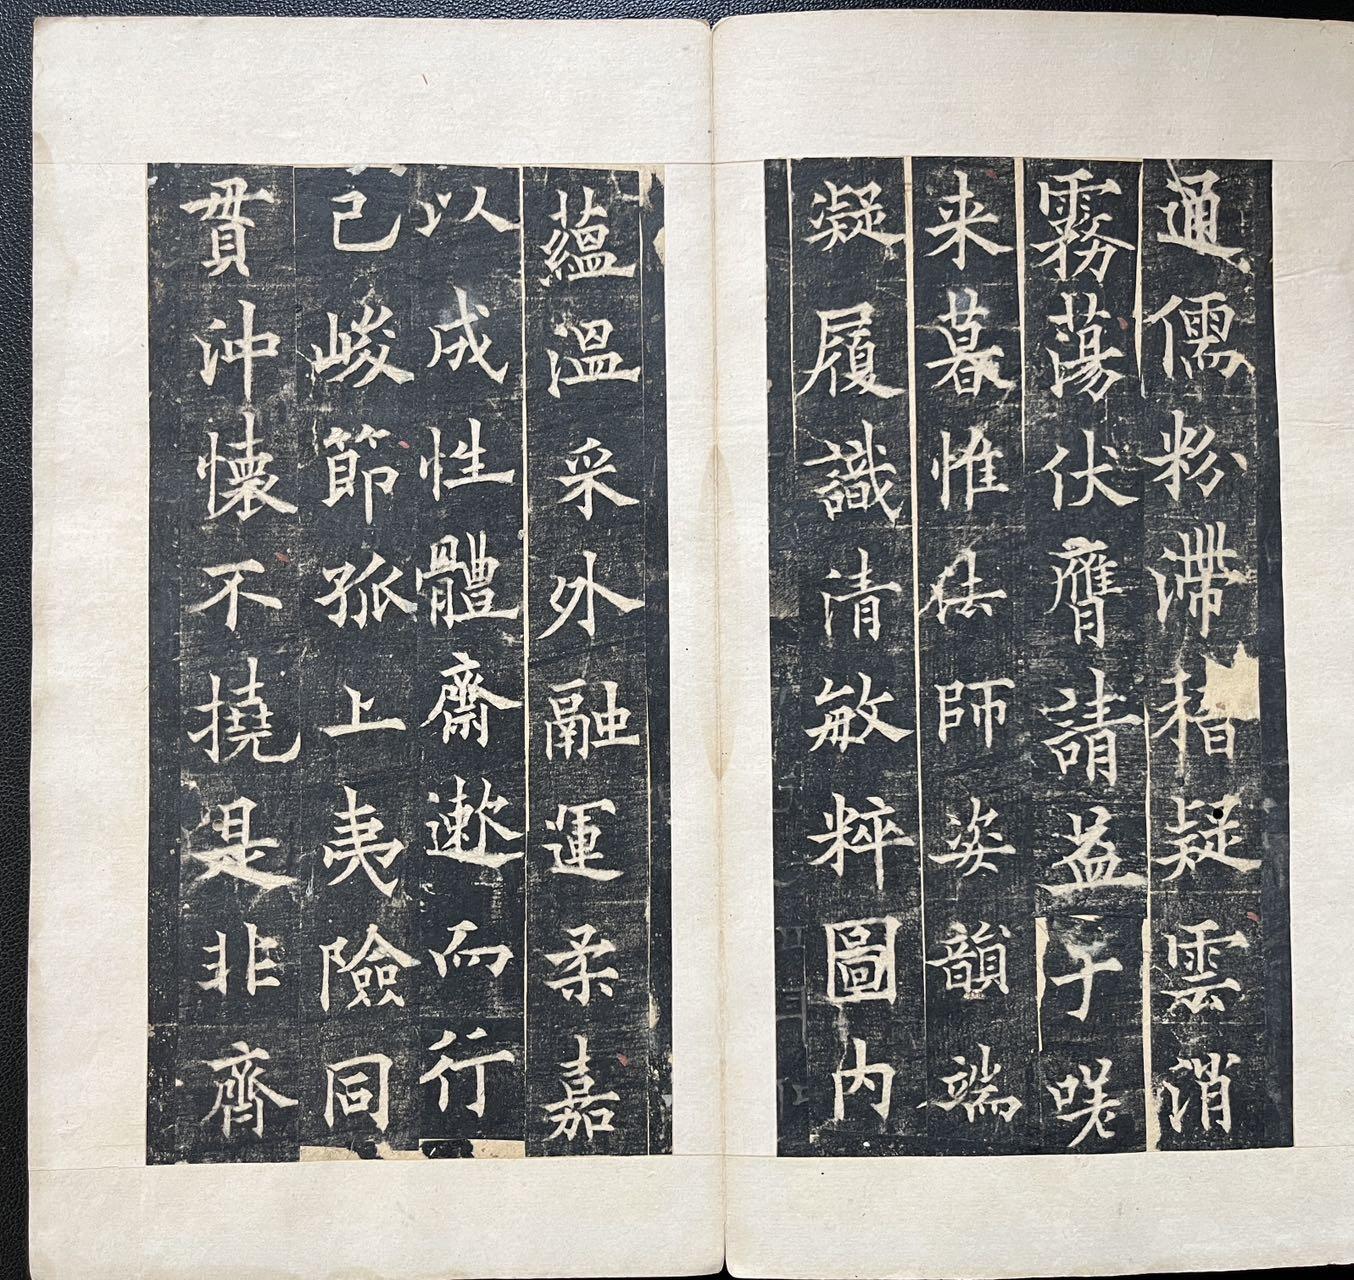 通儒粉滯稽疑雲消
霧蕩伏膺請益于嗟
来暮惟法師姿韻端
凝履識清敏粹圖内
蘊溫采外融運柔嘉
以成性體齋遬而行
己峻節孤上夷險同
貫沖懷不撓是非齊